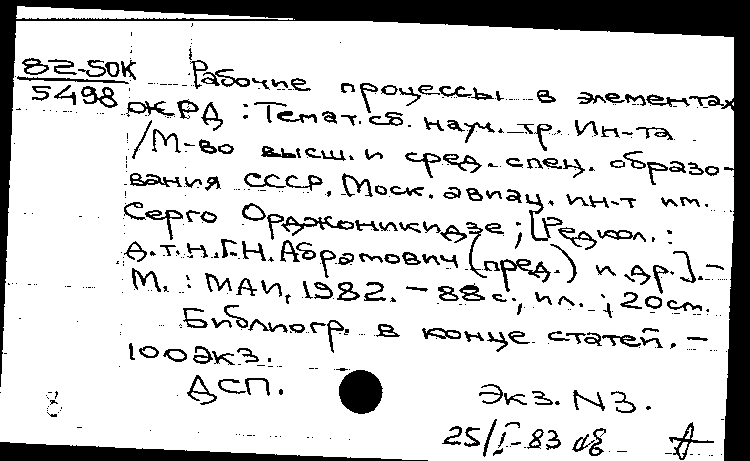 82-50К Рабочие процессы в элементах
5498 ЖРД : Темат. сб. науч. тр. Ин-та
/М-во высш. и сред. спец. образо-
вания СССР, Моск. авиац. ин-т им.
Серго Орджоникидзе ; [Редкол. :
д.т.н. Г.Н. Абрамович (пред.) и др.]. –
М. : МАИ, 1982. – 88 с., ил. ; 20 см.
Библиогр. в конце статей. –
100 экз.
ДСП.
8 Экз. N3.
25/I-83